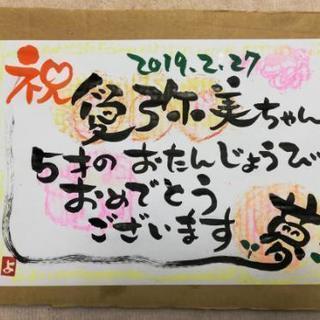 祝
2019.2.27
愛弥美ちゃん
5才のおたんじょうび
おめでとう
ございます
夢
よ